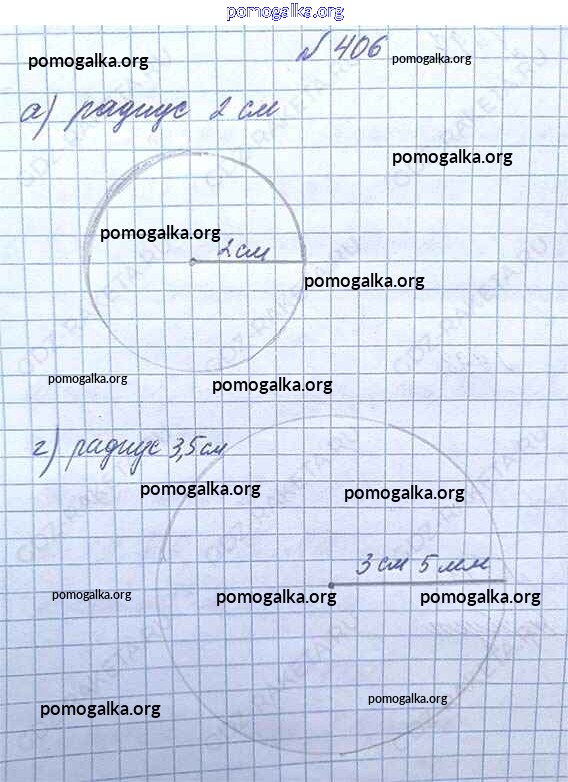 pomogalka.org
№ 406
pomogalka.org pomogalka.org
а) радиус 2 см
pomogalka.org
pomogalka.org
2 см
pomogalka.org
pomogalka.org pomogalka.org
г) радиус 3,5 см
pomogalka.org pomogalka.org
3 см 5 мм
pomogalka.org pomogalka.org pomogalka.org
pomogalka.org
pomogalka.org
GDZ-RAKETA.RU
GDZ-RAKETA.RU
GDZ-RAKETA.RU
GDZ-RAKETA.RU